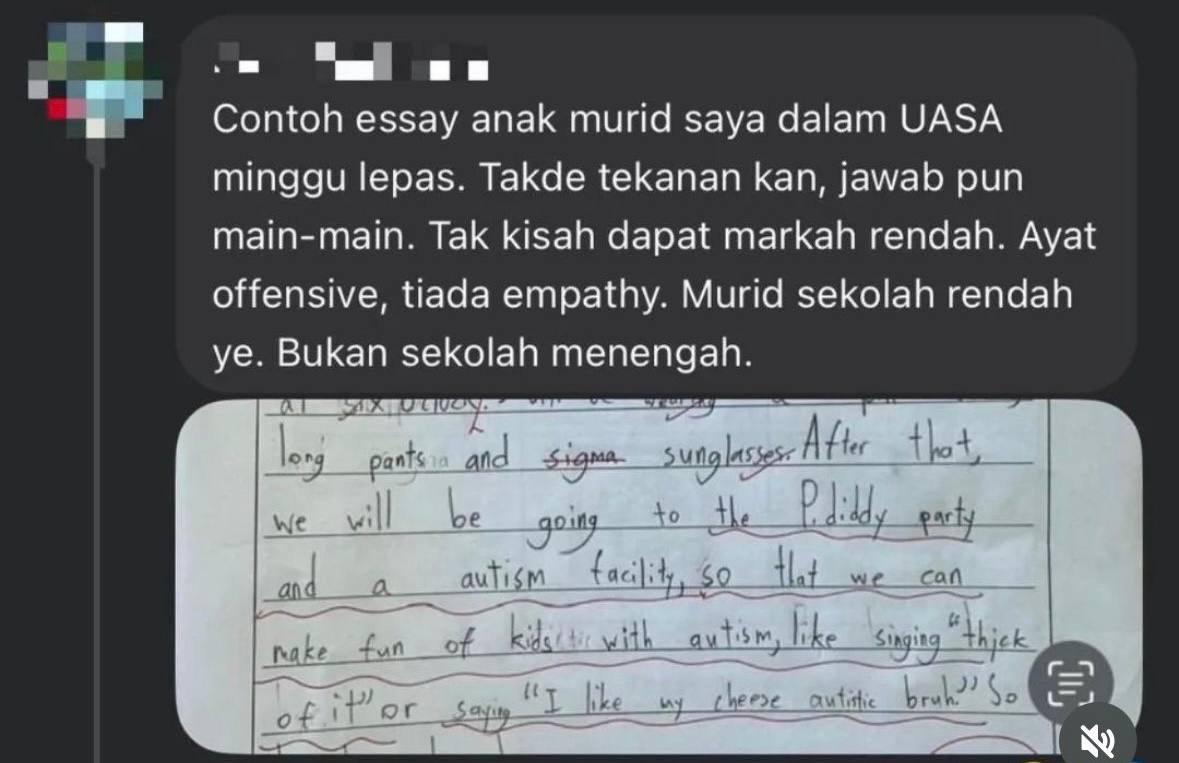 Contoh essay anak murid saya dalam UASA
minggu lepas. Takde tekanan kan, jawab pun
main-main. Tak kisah dapat markah rendah. Ayat
offensive, tiada empathy. Murid sekolah rendah
ye. Bukan sekolah menengah.
at six
long pants and sigma sunglasses. After that,
we will be going to the P. diddy party
and a autism facility, so that we can
make fun of kids with autism, like singing "thick
of it" or saying "I like my cheese autistic bruh." So